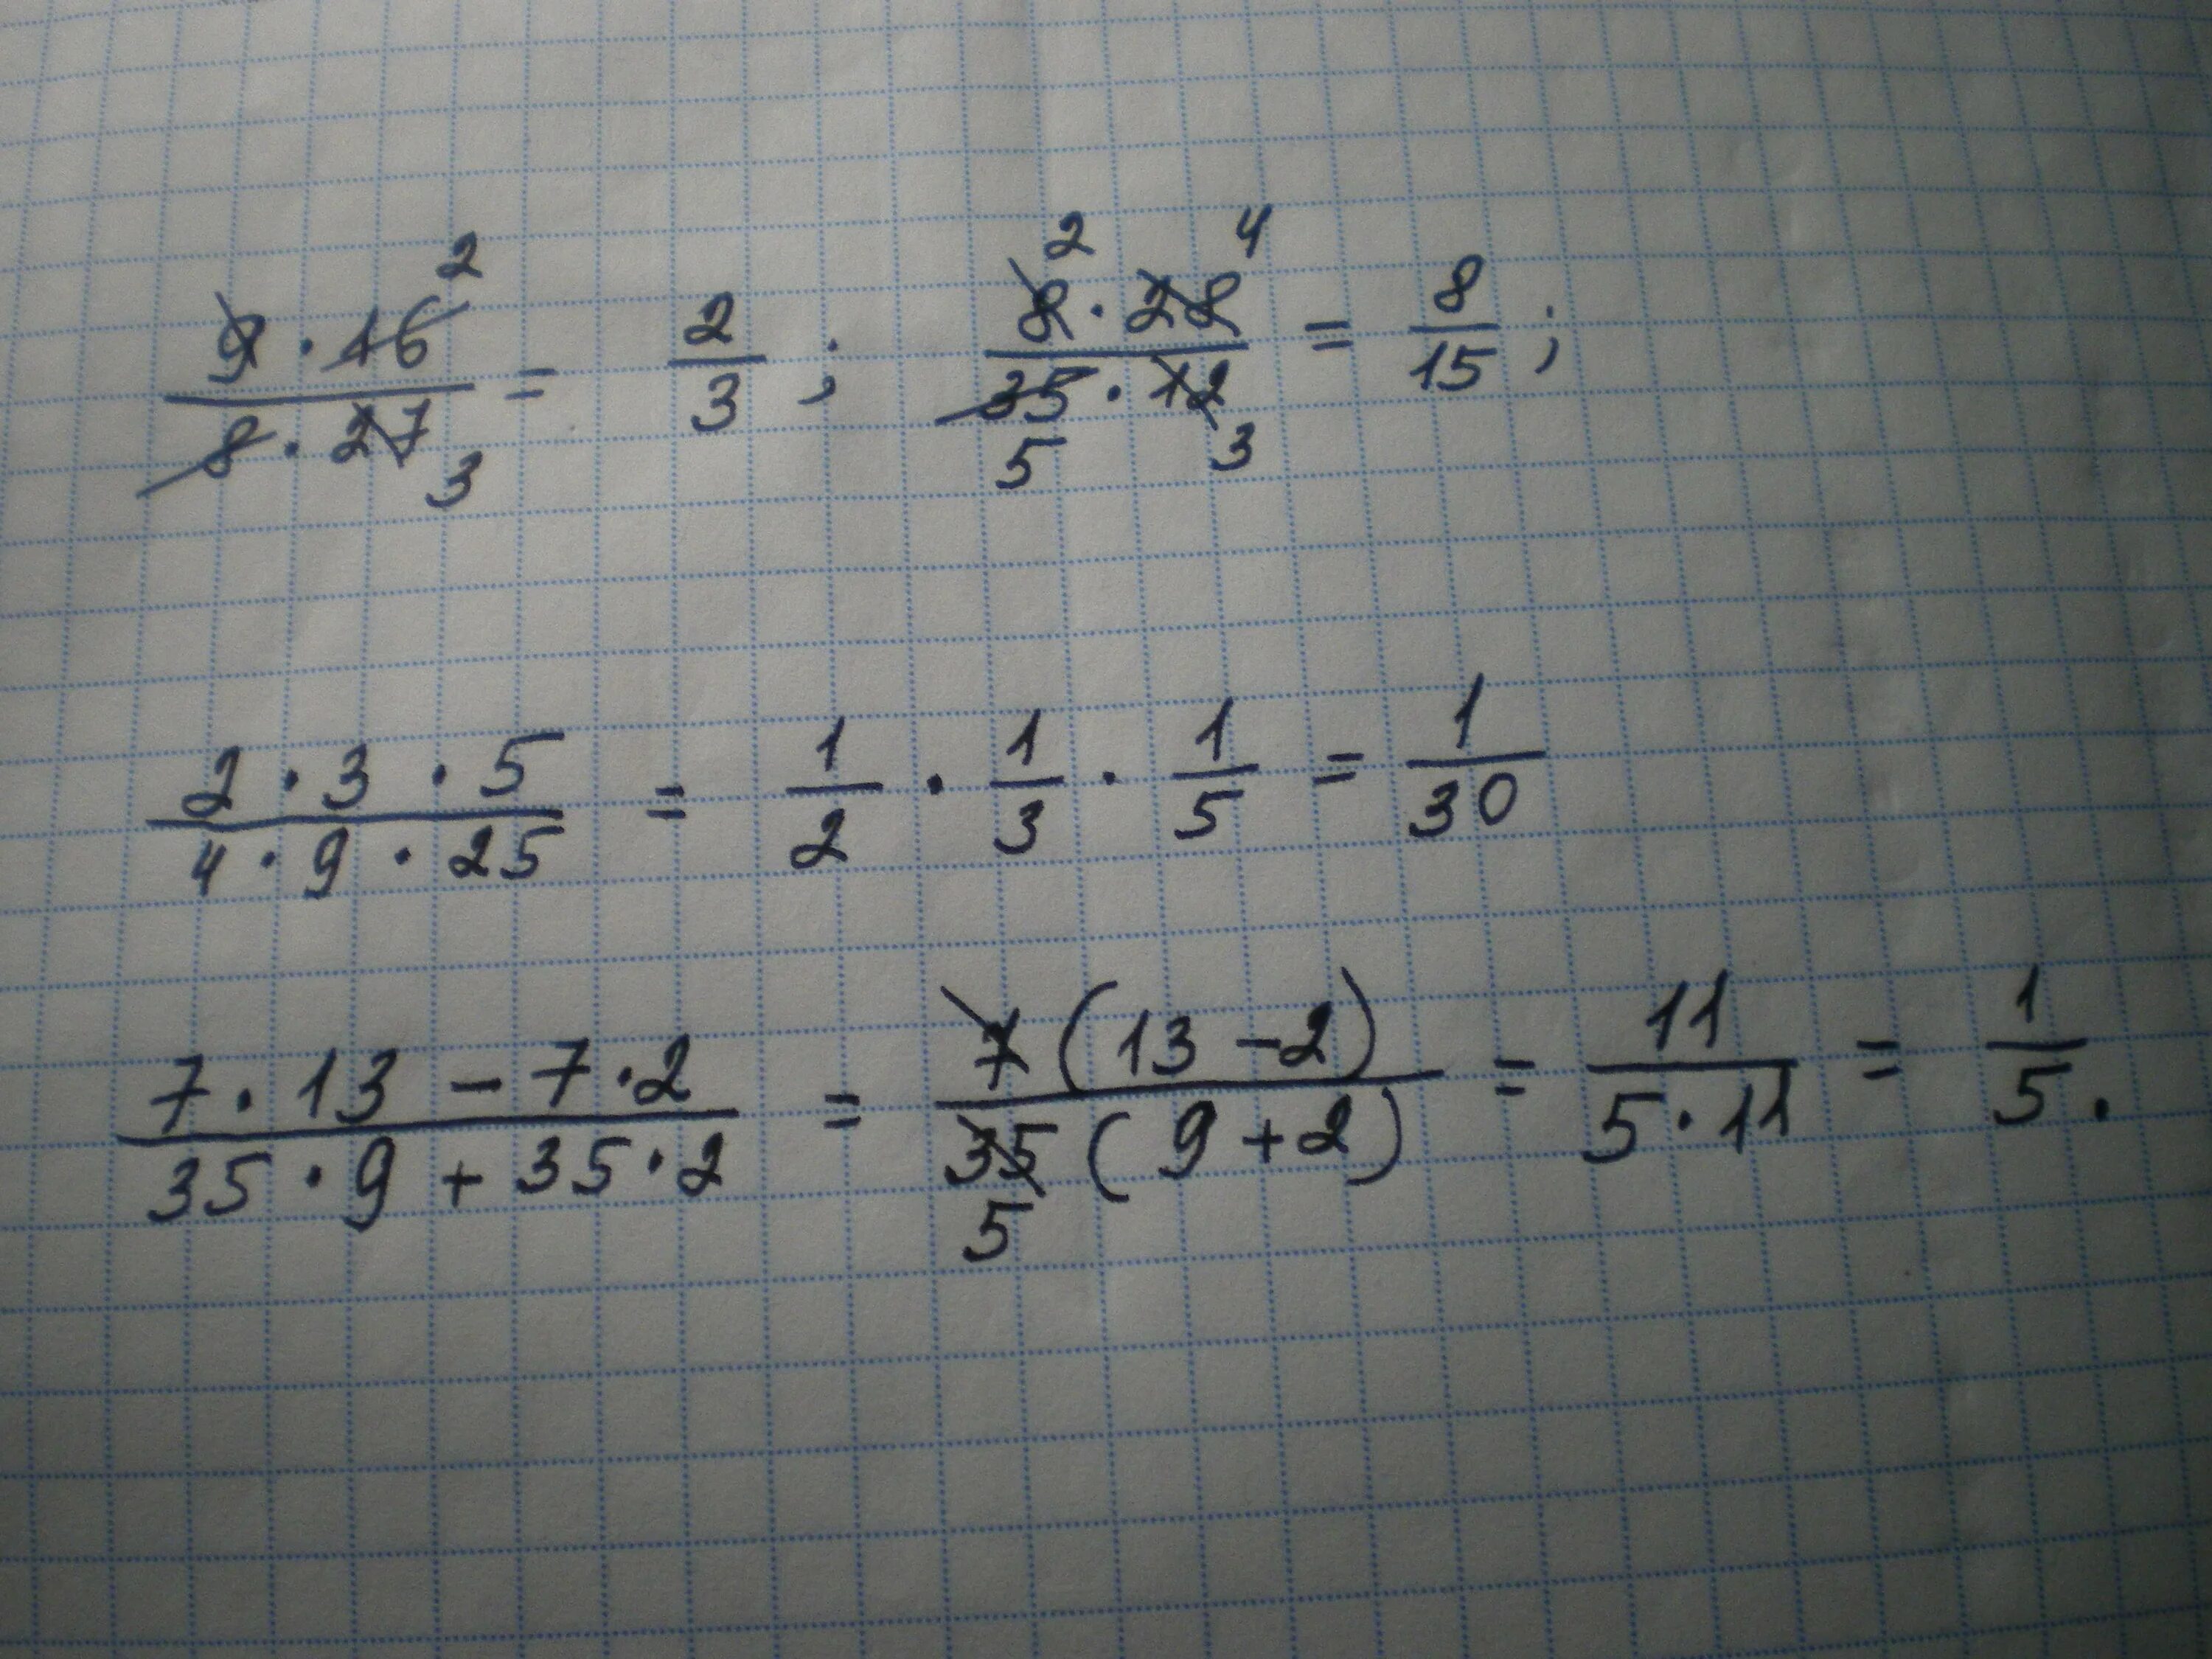 9 · 16 2 / 8 · 27 3 = 2/3 ; 8 2 · 28 4 / 35 5 · 12 3 = 8/15 ;
2 · 3 · 5 / 4 · 9 · 25 = 1/2 · 1/3 · 1/5 = 1/30
7 · 13 − 7 · 2 / 35 · 9 + 35 · 2 = 7 (13 − 2) / 35 5 (9 + 2) = 11 / 5 · 11 = 1/5 .